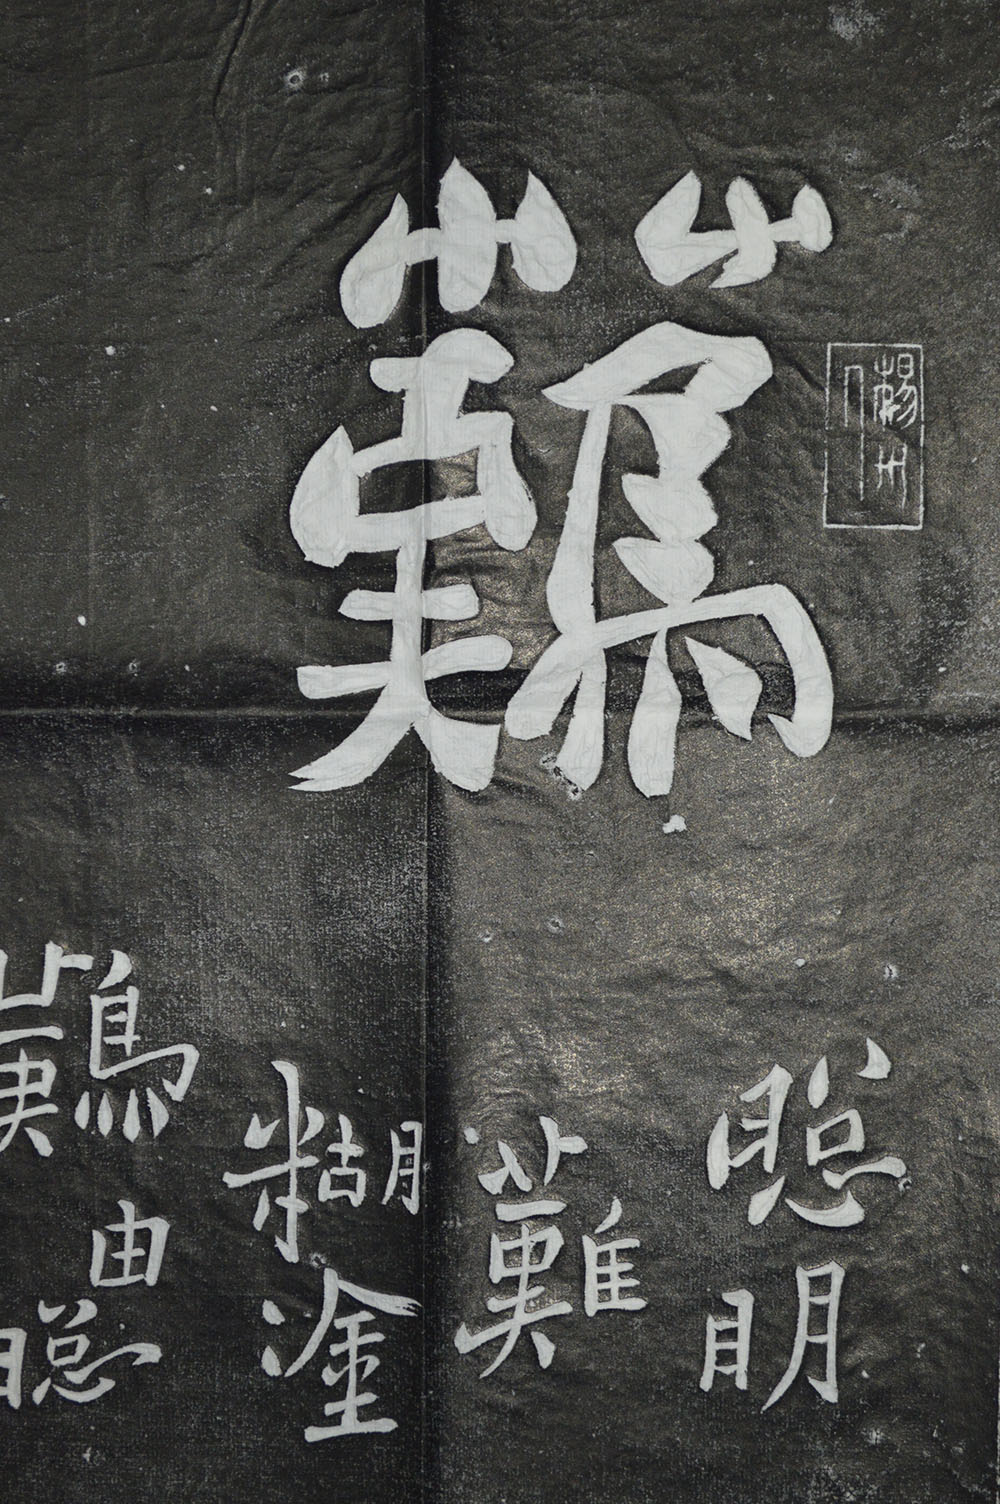 楊州
難
聰明
難
糊塗
難由聰